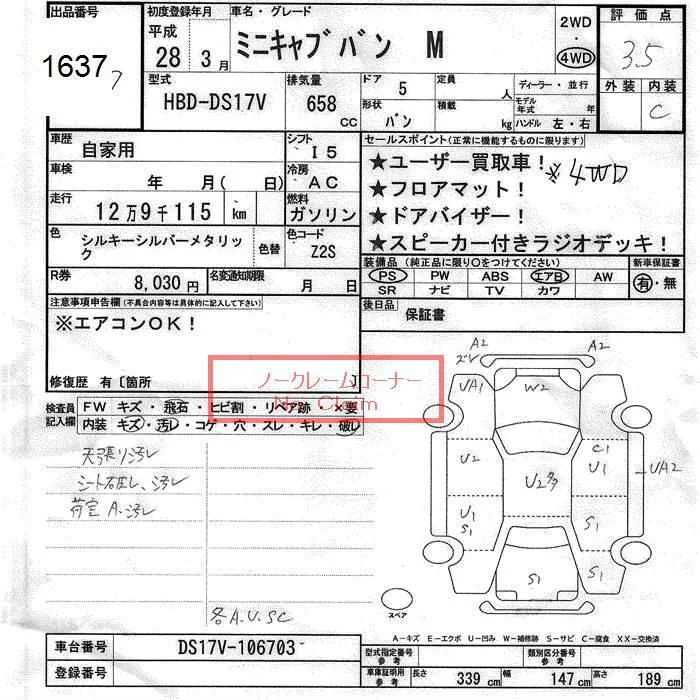 出品番号 初度登録年月 車名・グレード 2WD 評価点
1637 7 平成 28年 3月 ミニキャブバン M 4WD 3.5
外装 内装
型式 排気量 ドア 5 定員 人 ディーラー・並行 C
HBD-DS17V 658 CC 形状 バン 積載 kg モデル年式 年
ハンドル 左・右
車歴 自家用 シフト I5 セールスポイント(正常に機能するものに限ります)
車検 年 月( 日) 冷房 AC ★ユーザー買取車! ※4WD
★フロアマット!
走行 12万9千115 km 燃料 ガソリン ★ドアバイザー!
色 シルキーシルバーメタリック 色替 色コード Z2S ★スピーカー付きラジオデッキ!
装備品(純正品に限り○をつけてください) 新車保証書
R券 8,030円 名変通知期限 月 日 PS PW ABS エアB AW 有・無
SR ナビ TV カワ
注意事項申告欄(不具合内容等は具体的に記入して下さい) 後日品 保証書
※エアコンOK!
修復歴 有〔箇所
ノークレームコーナー
No Claim
検査員記入欄 FW キズ・飛石・ヒビ割・リペア跡・×要
内装 キズ・汚レ・コゲ・穴・スレ・キレ・破レ
天張り汚レ
シート破レ、汚レ
荷室A.汚レ
各A.U.SC
A2 A2
ズレ
UA1 W2
U2 C1
U1 UA2
U2多
U1 S1
S1
S1
スペア
A-キズ E-エクボ U-凹み W-補修跡 S-サビ C-腐食 XX-交換済
車台番号 DS17V-106703
型式指定番号 参考 類別区分番号 参考
登録番号 車庫証明用 参考 長さ 339 cm 幅 147 cm 高さ 189 cm